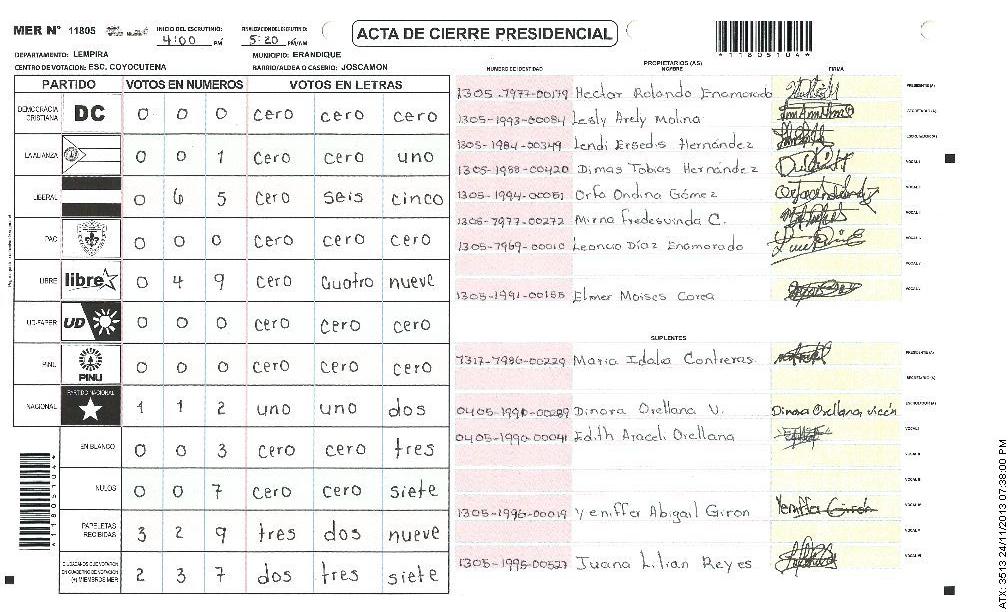 MER Nº 11805 INICIO DEL ESCRUTINIO: 4:00 PM FINALIZACION DEL ESCRUTINIO: 5:20 PM/AM
ACTA DE CIERRE PRESIDENCIAL
*1180510 4*
DEPARTAMENTO: LEMPIRA MUNICIPIO: ERANDIQUE
CENTRO DE VOTACION: ESC. COYOCUTENA BARRIO/ALDEA O CASERIO: JOSCAMON
PARTIDO VOTOS EN NUMEROS VOTOS EN LETRAS
DEMOCRACIA CRISTIANA DC 0 0 0 cero cero cero
LA ALIANZA 0 0 1 cero cero uno
LIBERAL 0 6 5 cero seis cinco
PAC 0 0 0 cero cero cero
LIBRE libre 0 4 9 cero cuatro nueve
UD-FAPER UD 0 0 0 cero cero cero
PINU PINU 0 0 0 cero cero cero
NACIONAL PARTIDO NACIONAL 1 1 2 uno uno dos
EN BLANCO 0 0 3 cero cero tres
NULOS 0 0 7 cero cero siete
PAPELETAS RECIBIDAS 3 2 9 tres dos nueve
CIUDADANOS QUE VOTARON EN CUADERNO DE VOTACION (+) MIEMBROS MER 2 3 7 dos tres siete
PROPIETARIOS (AS)
NUMERO DE IDENTIDAD NOMBRE FIRMA
1305-1977-00179 Hector Rolando Enamorado PRESIDENTE (A)
1305-1993-00084 Lesly Arely Molina SECRETARIO (A)
1305-1984-00349 Lendi Ersedis Hernández ESCRUTADOR (A)
1305-1988-00420 Dimas Tobias Hernández VOCAL I
1305-1994-00051 Orfa Ondina Gómez
1305-1977-00272 Mirna Fredesvinda C.
1305-1969-00010 Leoncio Díaz Enamorado
1305-1991-00155 Elmer Moises Corea
SUPLENTES
1317-1986-00229 Maria Idalia Contreras PRESIDENTE (A)
SECRETARIO (A)
0405-1990-00289 Dinora Orellana V. Dinora Orellana ESCRUTADOR (A)
0405-1990-00041 Edith Araceli Orellana VOCAL I
VOCAL II
VOCAL III
1305-1996-00019 Yeniffer Abigail Giron Yeniffer Girón VOCAL IV
VOCAL V
1305-1995-00527 Juana Lilian Reyes VOCAL VI
ATX: 3513 24/11/2013 07:38:00 PM